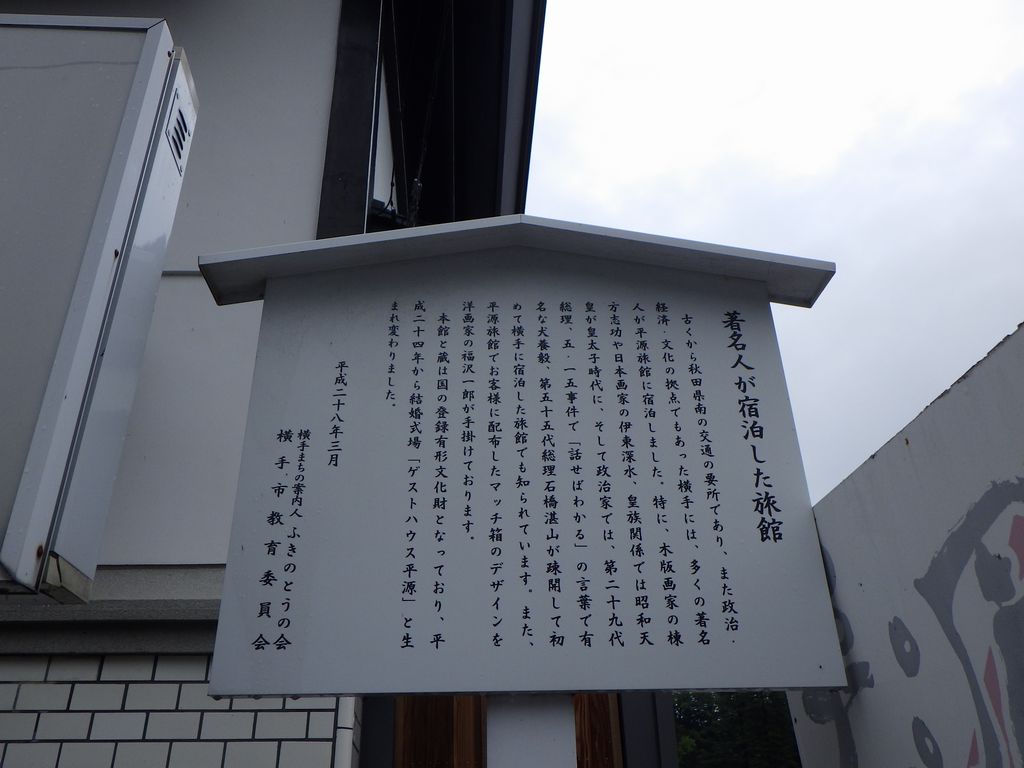 著名人が宿泊した旅館
古くから秋田県南の交通の要所であり、また政治・
経済・文化の拠点でもあった横手には、多くの著名
人が平源旅館に宿泊しました。特に、木版画家の棟
方志功や日本画家の伊東深水、皇族関係では昭和天
皇が皇太子時代に、そして政治家では、第二十九代
総理、五・一五事件で「話せばわかる」の言葉で有
名な犬養毅、第五十五代総理石橋湛山が疎開して初
めて横手に宿泊した旅館でも知られています。また、
平源旅館でお客様に配布したマッチ箱のデザインを
洋画家の福沢一郎が手掛けております。
本館と蔵は国の登録有形文化財となっており、平
成二十四年から結婚式場「ゲストハウス平源」と生
まれ変わりました。
平成二十八年三月
横手まちの案内人 ふきのとうの会
横手市教育委員会